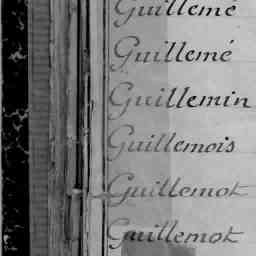 Guillemé
Guillemé
Guillemin
Guillemois
Guillemot
Guillemot